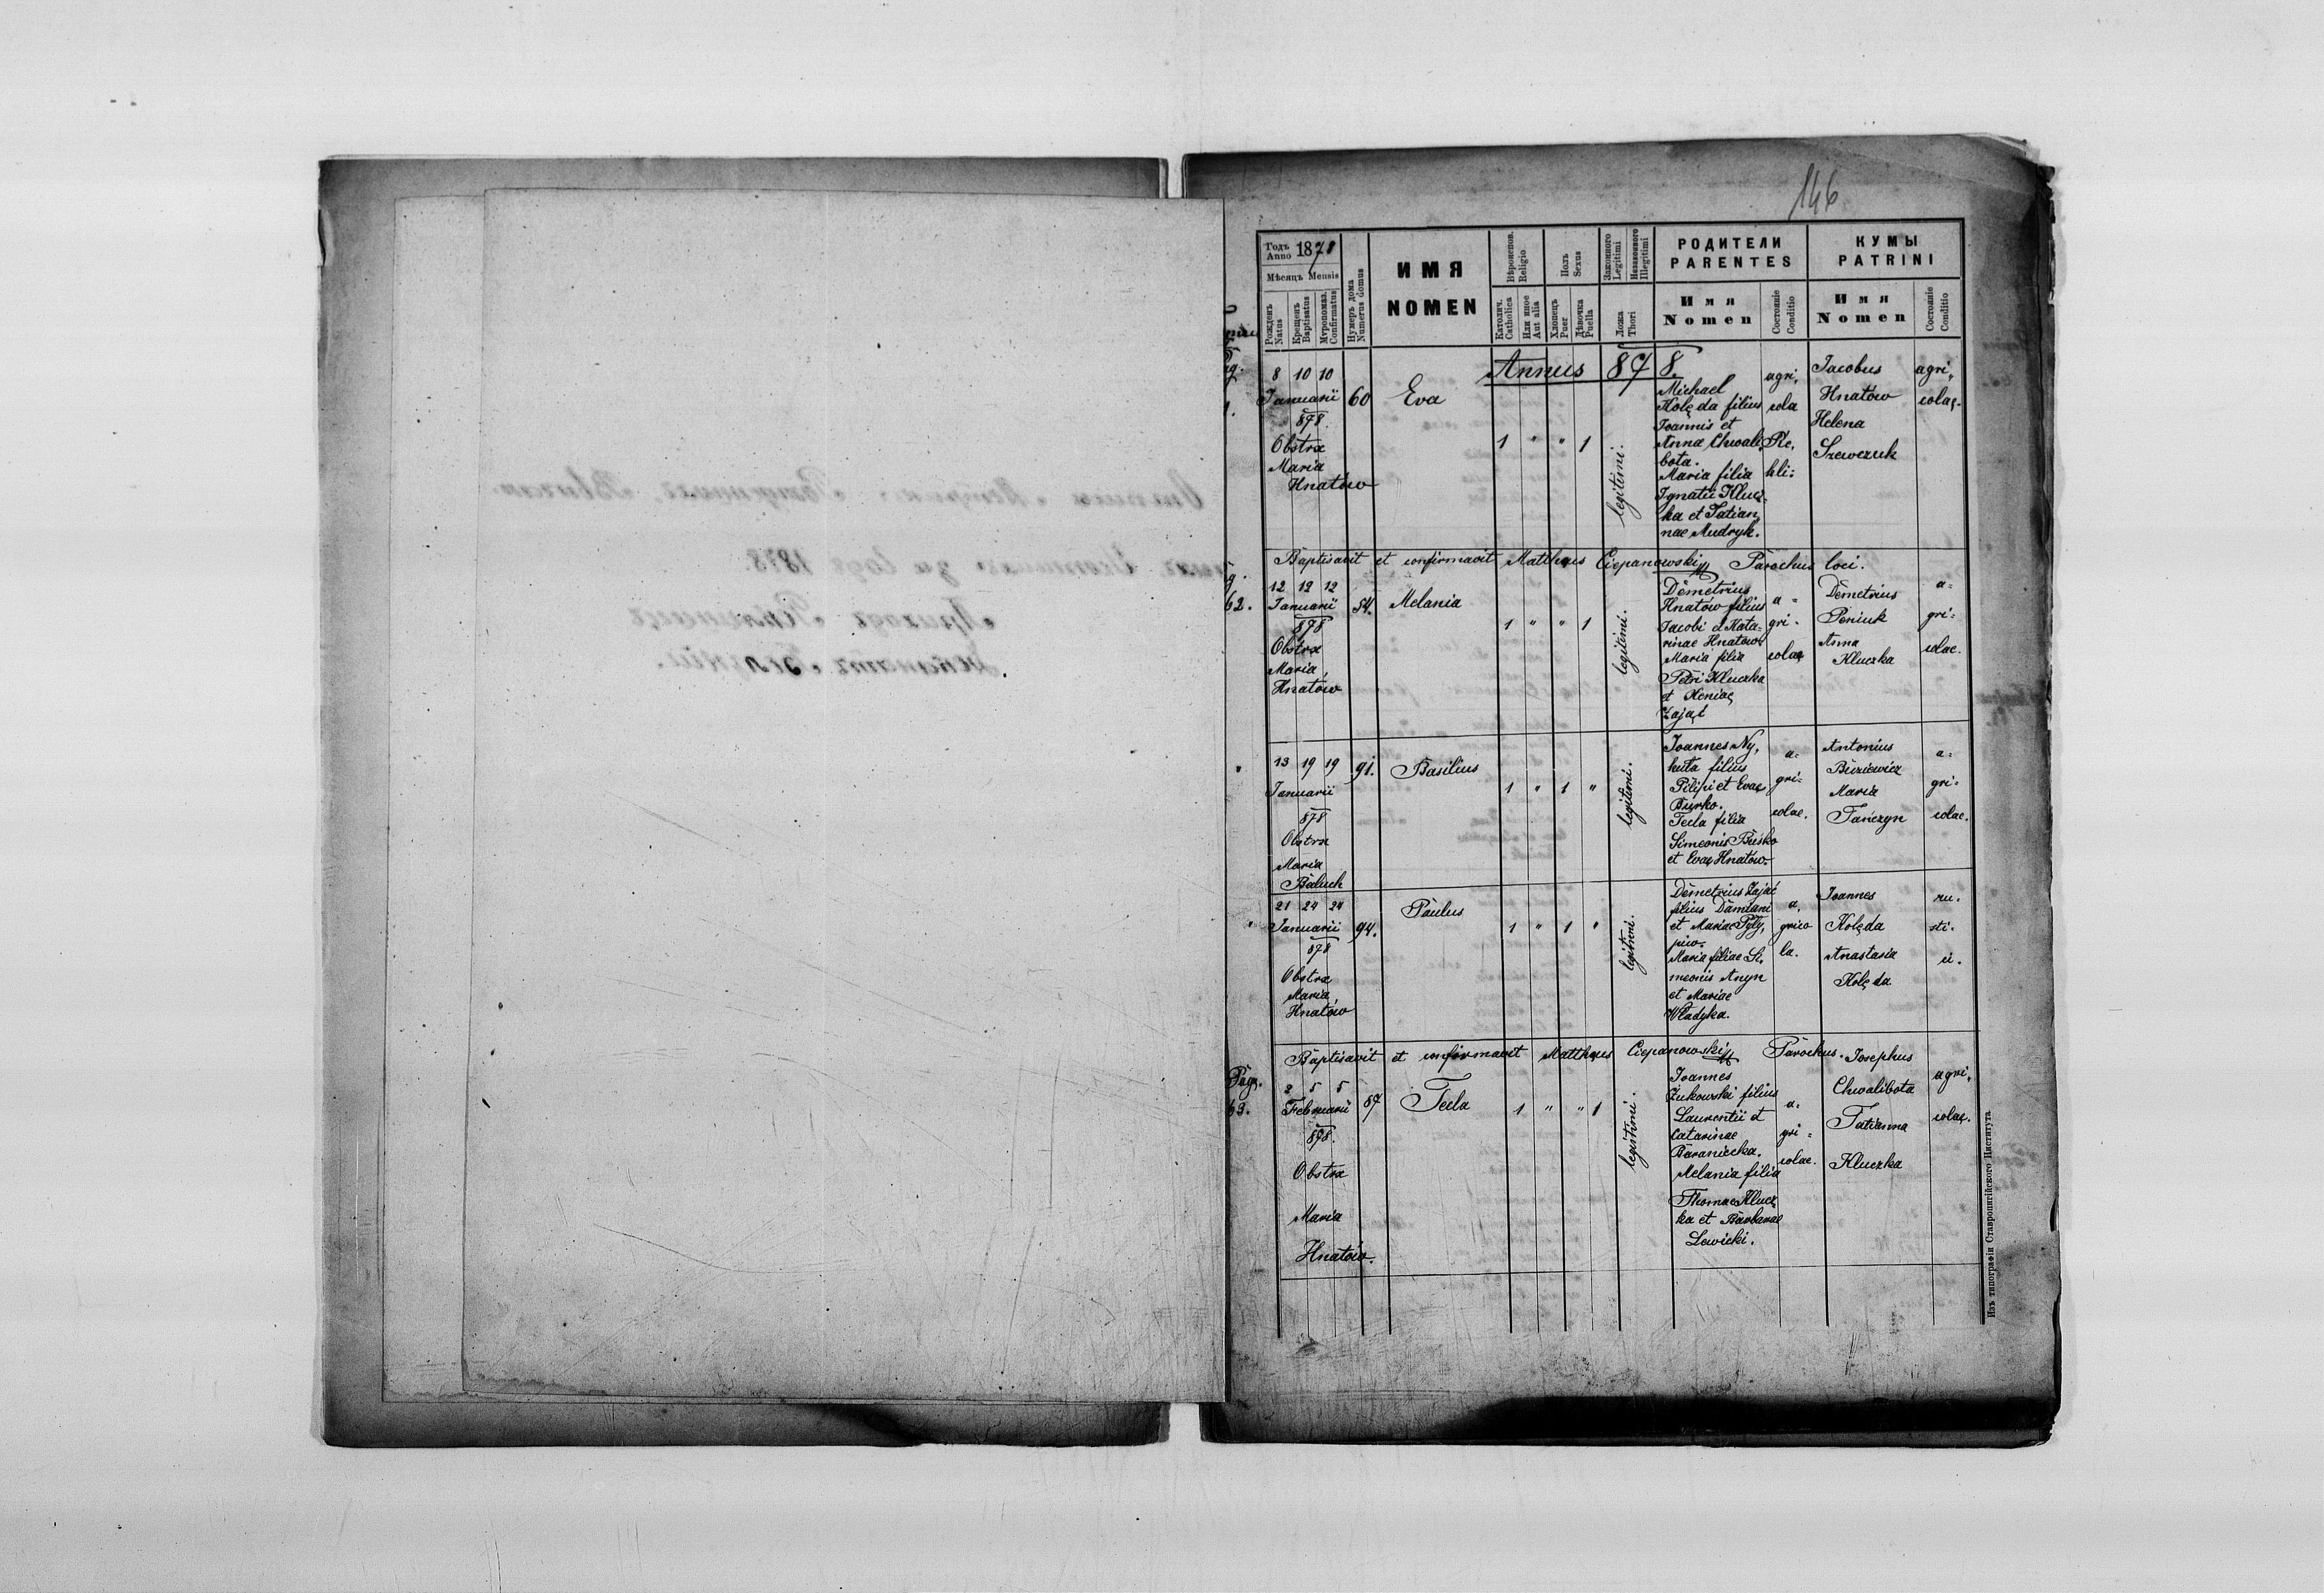 146
Годъ Anno 1878
Мѣсяцъ Mensis
Рожденъ Natus
Крещенъ Baptisatus
Мѵропомаз. Confirmatus
Нумеръ дома Numerus domus
ИМЯ
NOMEN
Вѣроисповѣд. Religio
Католич. Catholica
Или иное Aut alia
Полъ Sexus
Хлопецъ Puer
Дѣвочка Puella
Законного Legitimi
Незаконного Illegitimi
Ложа Thori
РОДИТЕЛИ
PARENTES
Имя
Nomen
Состояніе Conditio
КУМЫ
PATRINI
Имя
Nomen
Состояніе Conditio
Annus 878.
8 10 10
Januarii
878
Obstrx
Maria
Hnatów
60
Eva
1 " " 1
legitimi.
Michael
Kolęda filius
Joannis et
Annæ Chwali
bota.
Maria filia
Ignatii Klucz
ka et Tatian
nae Mudryk.
agri,
cola
Jacobus
Hnatów
Helena
Szewczuk
agri,
colaę.
Baptisavit et confirmavit Matthæus Ciepanowski Parochus loci.
62.
12 12 12
Januarii
878
Obstrx
Maria
Hnatów
54.
Melania
1 " " 1
legitimi.
Demetrius
Hnatów filius
Jacobi et Kata-
rinae Hnatów
Maria filia
Petri Kluczka
et Xeniaę
Zając
a -
gri -
colaę
Demetrius
Peniuk
Anna
Kluczka
a=
gri=
colae.
13 19 19
Januarii
878
Obstrx
Maria
Baluch
91.
Basilius
1 " 1 "
legitimi.
Joannes Ny,
kuta filius
Pilipi et Evaę
Burko.
Tecla filia
Simeonis Buśko
et Evaę Hnatów.
a-
gri-
colae.
Antonius
Buziewicz
Maria
Tańczyn
a=
gri=
colae.
21 24 24
Januarii
878
Obstrx
Maria
Hnatów
94.
Paulus
1 " 1 "
legitimi.
Demetrius Zając
filius Damiani
et Mariae Pyly,
piw.
Maria filiae Si,
meonis Anyn
et Mariae
Władyka.
a,
grico
la.
Joannes
Kolęda
Anastasia
Kolęda
ru.
sti-
ci.
Baptisavit et confirmavit Matthæus Ciepanowski Parochus.
Pag.
63.
2 5 5
Februarii
878.
Obstrx
Maria
Hnatów.
87
Tecla
1 " " 1
legitimi.
Joannes
Żukowski filius
Laurentii et
Catarinae
Baraniecka.
Melania filia
Thomae Klucz
ka et Barbarae
Lewicki.
a-
gri=
colae.
Josephus
Chwalibota
Tatianna
Kluczka
agri,
colaę.
Изъ типографіи Ставропигійского Института